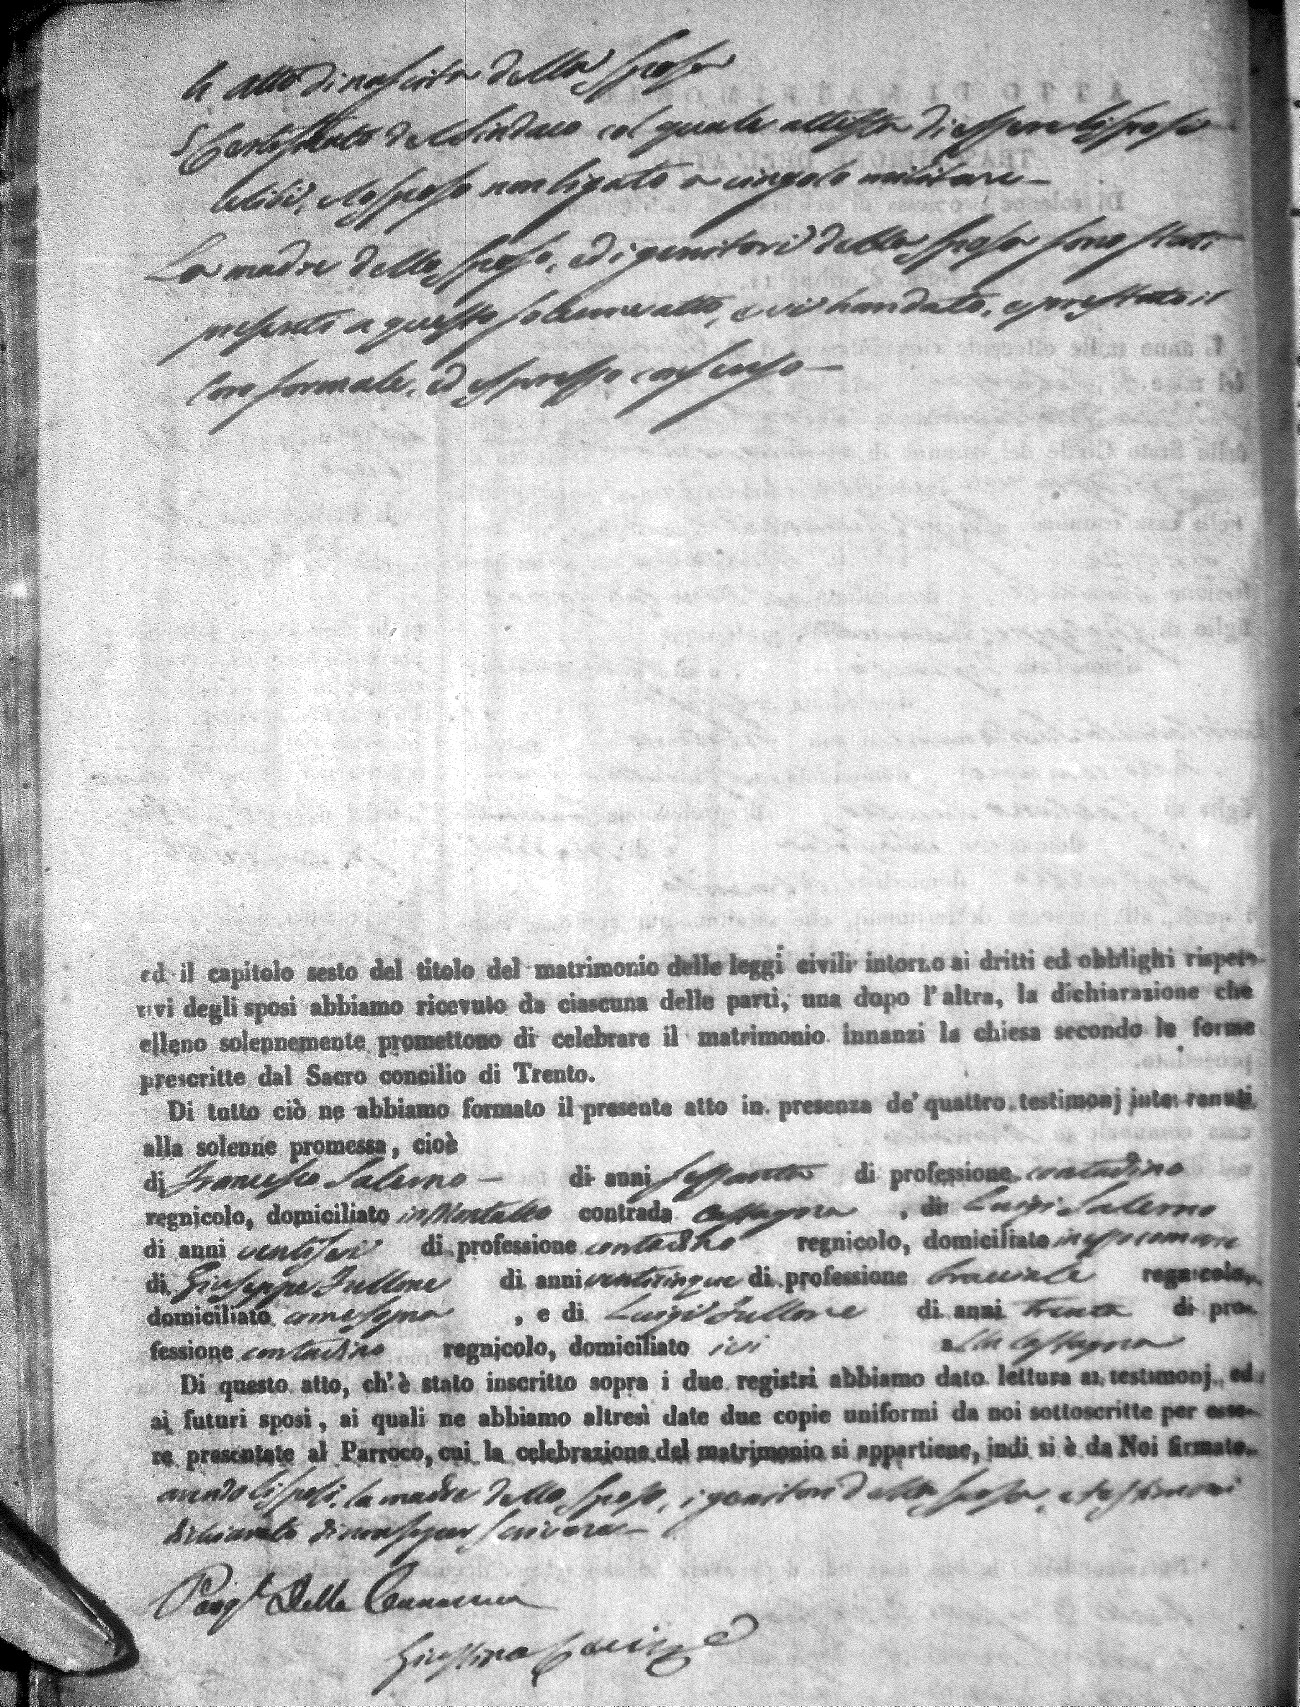 4 atto di nascita della sposa
5 Certificato del Sindaco col quale attesta di essere li sposi
celibi, e lo sposo non ligato a cingolo militare —
La madre dello sposo, ed i genitori della sposa sono stati
presenti a questo solenne atto, e vi han dato, e prestato il
loro formale, ed espresso consenso —
ed il capitolo sesto del titolo del matrimonio delle leggi civili intorno ai dritti ed obblighi rispet-
tivi degli sposi abbiamo ricevuto da ciascuna delle parti, una dopo l'altra, la dichiarazione che
elleno solennemente promettono di celebrare il matrimonio innanzi la chiesa secondo le forme
prescritte dal Sacro concilio di Trento.
Di tutto ciò ne abbiamo formato il presente atto in presenza de' quattro testimonj intervenuti
alla solenne promessa, cioè
di Francesco Salerno — di anni sessanta di professione contadino
regnicolo, domiciliato in Montalto contrada Cassagna, di Luigi Salerno
di anni ventisei di professione contadino regnicolo, domiciliato
di Giuseppe Tullone di anni venticinque di professione bracciale regnicolo,
domiciliato come sopra, e di Luigi Tullone di anni trenta di pro-
fessione contadino regnicolo, domiciliato ivi alla Cassagna
Di questo atto, ch'è stato inscritto sopra i due registri abbiamo dato lettura ai testimonj, ed
ai futuri sposi, ai quali ne abbiamo altresì date due copie uniformi da noi sottoscritte per esse-
re presentate al Parroco, cui la celebrazione del matrimonio si appartiene, indi si è da Noi firmato,
avendo li sposi, la madre dello sposo, i genitori della sposa, e testimoni
dichiarato di non saper scrivere —
Pasq.le Della